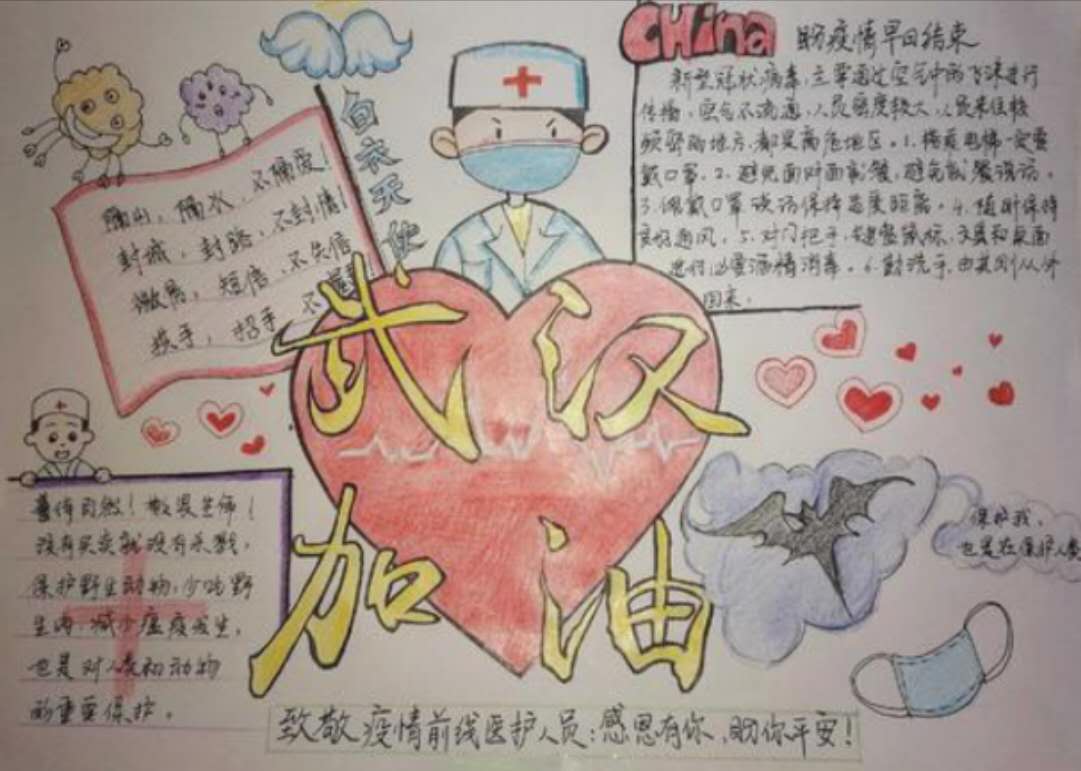 China
盼疫情早日结束
新型冠状病毒,主要通过空气中的飞沫进行
传播,空气不流通,人员密度较大,人员来往较
频繁的地方,都是高危地区。1.
戴口罩。2.避免面对面就餐,避免就餐说话。
3.佩戴口罩谈话保持适度距离。4.随时保持
良好通风。5.对门把手,键盘鼠标,文具和桌面
进行必要酒精消毒。6.勤洗手,尤其刚从外
回来。
白衣天使
隔山,隔水,不隔爱!
封城,封路,不封情!
微信,短信,不失信
握手,招手,不
武汉
加油
善待自然!敬畏生命!
没有买卖就没有杀戮,
保护野生动物,少吃野
生肉,减少瘟疫发生,
也是对人类和动物
的重要保护。
保护我,
也是在保护人类
致敬疫情前线医护人员:感恩有你,盼你平安!